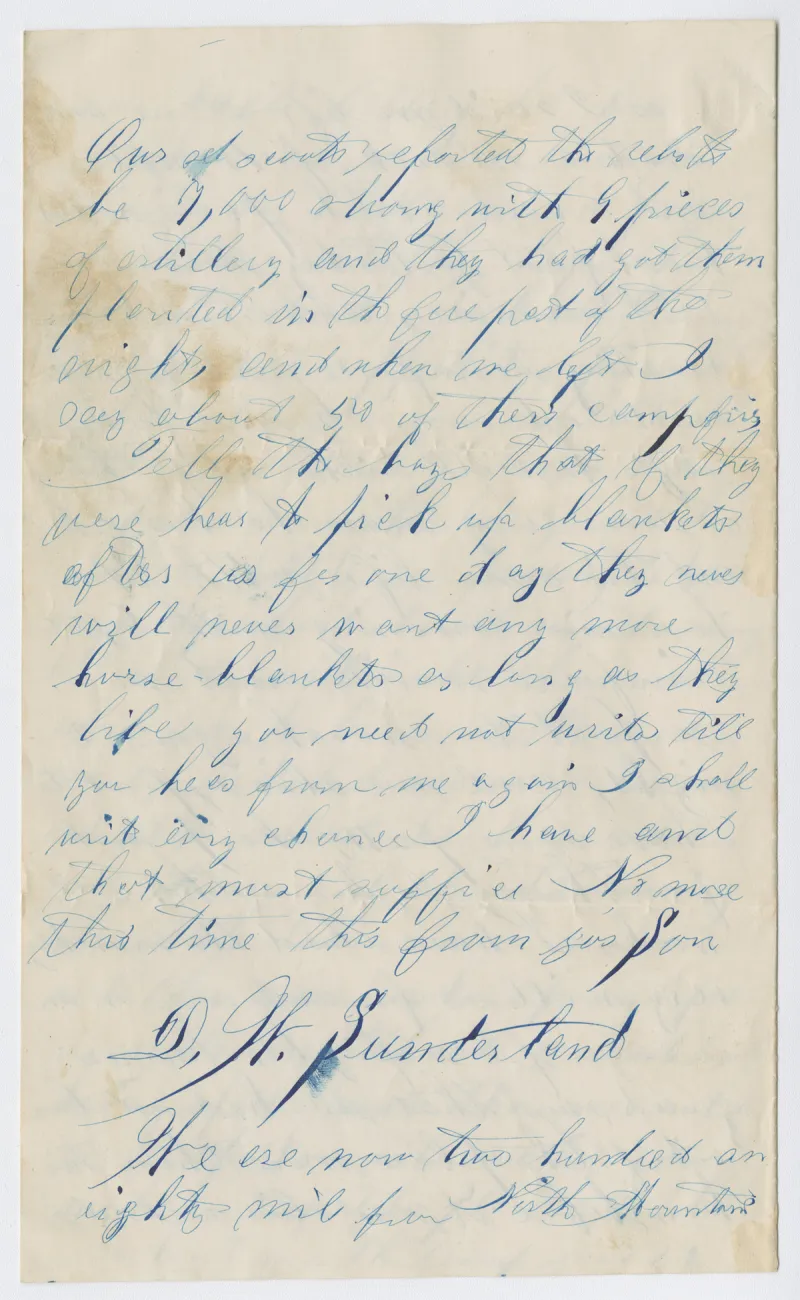 Our scouts reported the rebs to
be 7,000 strong with 9 pieces
of artillery and they had got them
planted in th fore part of the
night, and when we left I
say about 50 of thers campfirs
Tell the boys that if they
were hear to pick up blankets
after us for one day they never
will never want any more
horse-blankets as long as they
live you need not write till
you hear from me again I shall
writ evry chance I have and
that must suffice No more
this time this from your Son
D, W. Sunderland
We are now two hundred an
eighty mil from North Mountain